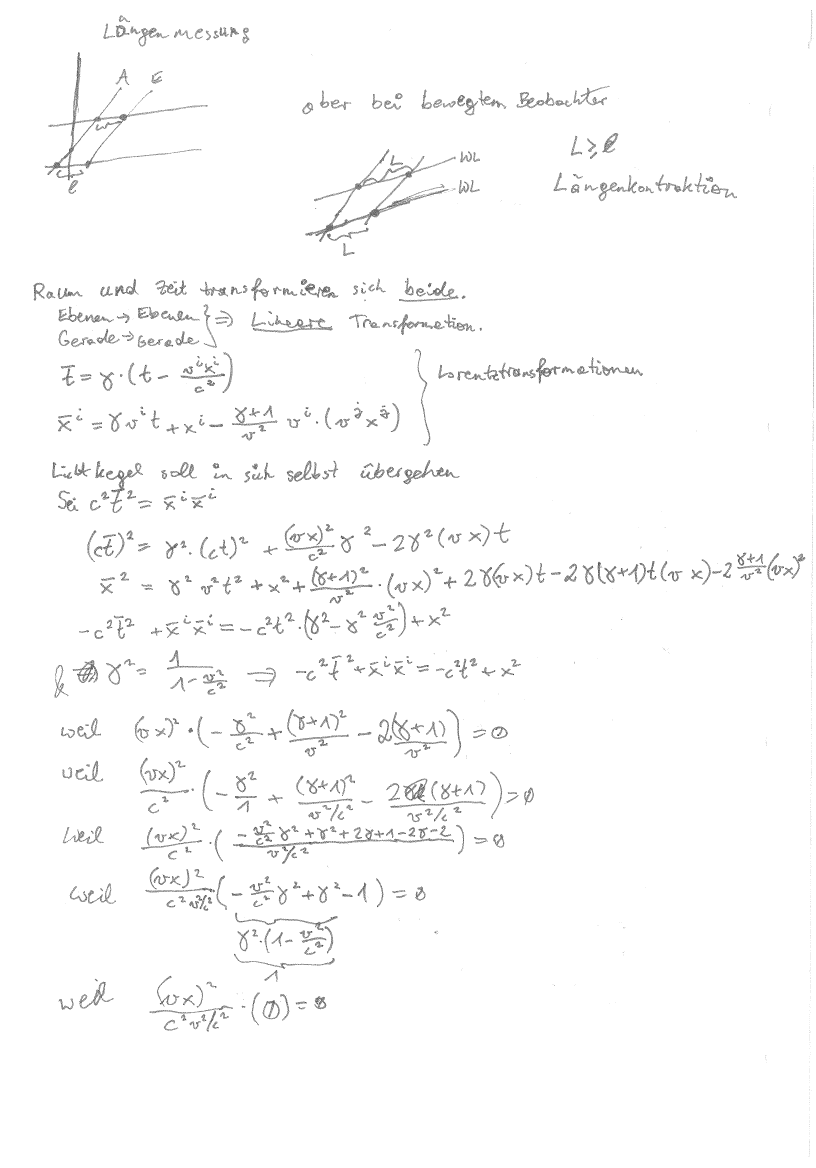 Längenmessung
A E
w
l
aber bei bewegtem Beobachter
L WL
WL
L
L ≥ l
Längenkontraktion
Raum und Zeit transformieren sich beide.
Ebenen → Ebenen
Gerade → Gerade } ⇒ Lineare Transformation.
t̅ = γ·(t − vⁱxⁱ/c²)
x̅ⁱ = γvⁱt + xⁱ − (γ+1)/v² vⁱ·(vʲxʲ) } Lorentztransformationen
Lichtkegel soll in sich selbst übergehen
Sei c²t̅² = x̅ⁱx̅ⁱ
(ct̅)² = γ²·(ct)² + (vx)²/c² γ² − 2γ²(vx)t
x̅² = γ²v²t² + x² + (γ+1)²/v²·(vx)² + 2γ(vx)t − 2γ(γ+1)t(vx) − 2 (γ+1)/v² (vx)²
−c²t̅² + x̅ⁱx̅ⁱ = −c²t²·(γ² − γ² v²/c²) + x²
& γ² = 1/(1 − v²/c²) ⇒ −c²t̅² + x̅ⁱx̅ⁱ = −c²t² + x²
weil (vx)²·(−γ²/c² + (γ+1)²/v² − 2(γ+1)/v²) = 0
weil (vx)²/c²·(−γ²/1 + (γ+1)²/(v²/c²) − 2(γ+1)/(v²/c²)) = 0
weil (vx)²/c²·((−v²/c² γ² + γ² + 2γ + 1 − 2γ − 2)/(v²/c²)) = 0
weil (vx)²/(c² v²/c²) (−v²/c² γ² + γ² − 1) = 0
γ²·(1 − v²/c²)
1
weil (vx)²/(c² v²/c²)·(0) = 0